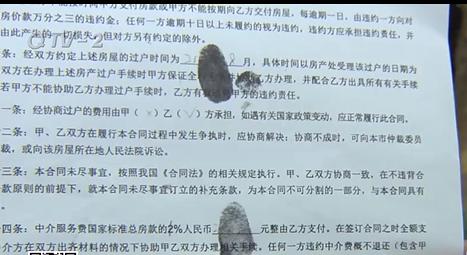 按时间甲方交付房款或甲方不能按期向乙方交付房屋,每逾期一日,由违约一方向对
房价款万分之三的违约金;任何一方逾期十日以上未履约的视为违约,违约方应承担违约责任,并
由此产生的一切损失,但对方另有约定的除外。
CCTV-2
条:经双方约定上述房屋的过户时间为 月,具体时间以房产处受理该过户的日期为
双方在办理上述房产过户手续时甲方保证全 乙方办理,并配合乙方出具所有有关手续
若甲方不能协助乙方办理过户手续时,乙方有 甲方的违约责任。
一条:经协商过户的费用由甲(×)乙(√)方承担,如遇有关国家政策变动,应正常履行此合同。
二条:甲、乙双方在履行本合同过程中发生争执时,应协商解决;协商不成时,可向本市仲裁委员
裁,或向该房屋所在地人民法院诉讼。
三条:本合同未尽事宜,按照我国《合同法》的相关规定执行。甲、乙双方协商一致,在不违背合
款原则的前提下,就本合同未尽事宜订立的补充条款,为本合同不可分割的一部分,与本合同具有
。
四条:中介服务费国家标准总房款的2%人民币 元整由乙方支付。在签订合同之时全额支
介方在双方出齐材料的情况下协助甲乙双方办理相关手续。任何一方违约中介费概不退还(包含甲